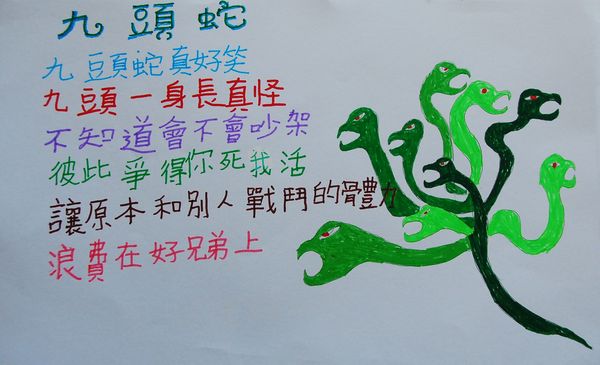 九頭蛇
九頭蛇真好笑
九頭一身長真怪
不知道會不會吵架
彼此爭得你死我活
讓原本和別人戰鬥的體力
浪費在好兄弟上